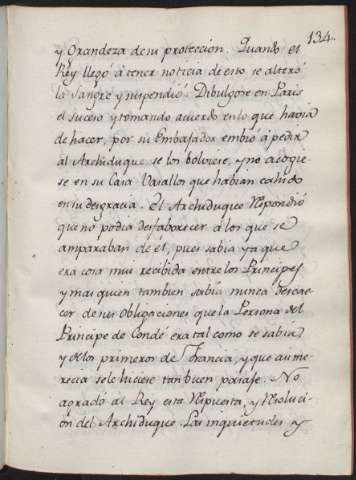 134.
y Grandeza de su proteccion. Quando el
Rey llegó á tener noticia de esto se alteró
la Sangre y suspendió. Dibulgose en Paris
el suceso y tomando acuerdo en lo que havia
de hacer, por su Embajador embió á pedir
al Archiduque se los bolviese, y no acogie-
se en su Casa Vasallos que habian cahido
en su desgracia. El Archiduque Respondió
que no podia desfaborecer á los que se
amparaban de él, pues sabia ya que
era cosa muy recibida entre los Principes
y mas quien tambien sabia nunca descae-
cer de sus obligaciones que la Persona del
Principe de Condé era tal como se sabia
y de los primeros de Francia, y que aun me-
recia se le hiciese tan buen pasaje. No
agradó al Rey esta Respuesta, y Resoluci-
on del Archiduque. Las inquietudes y